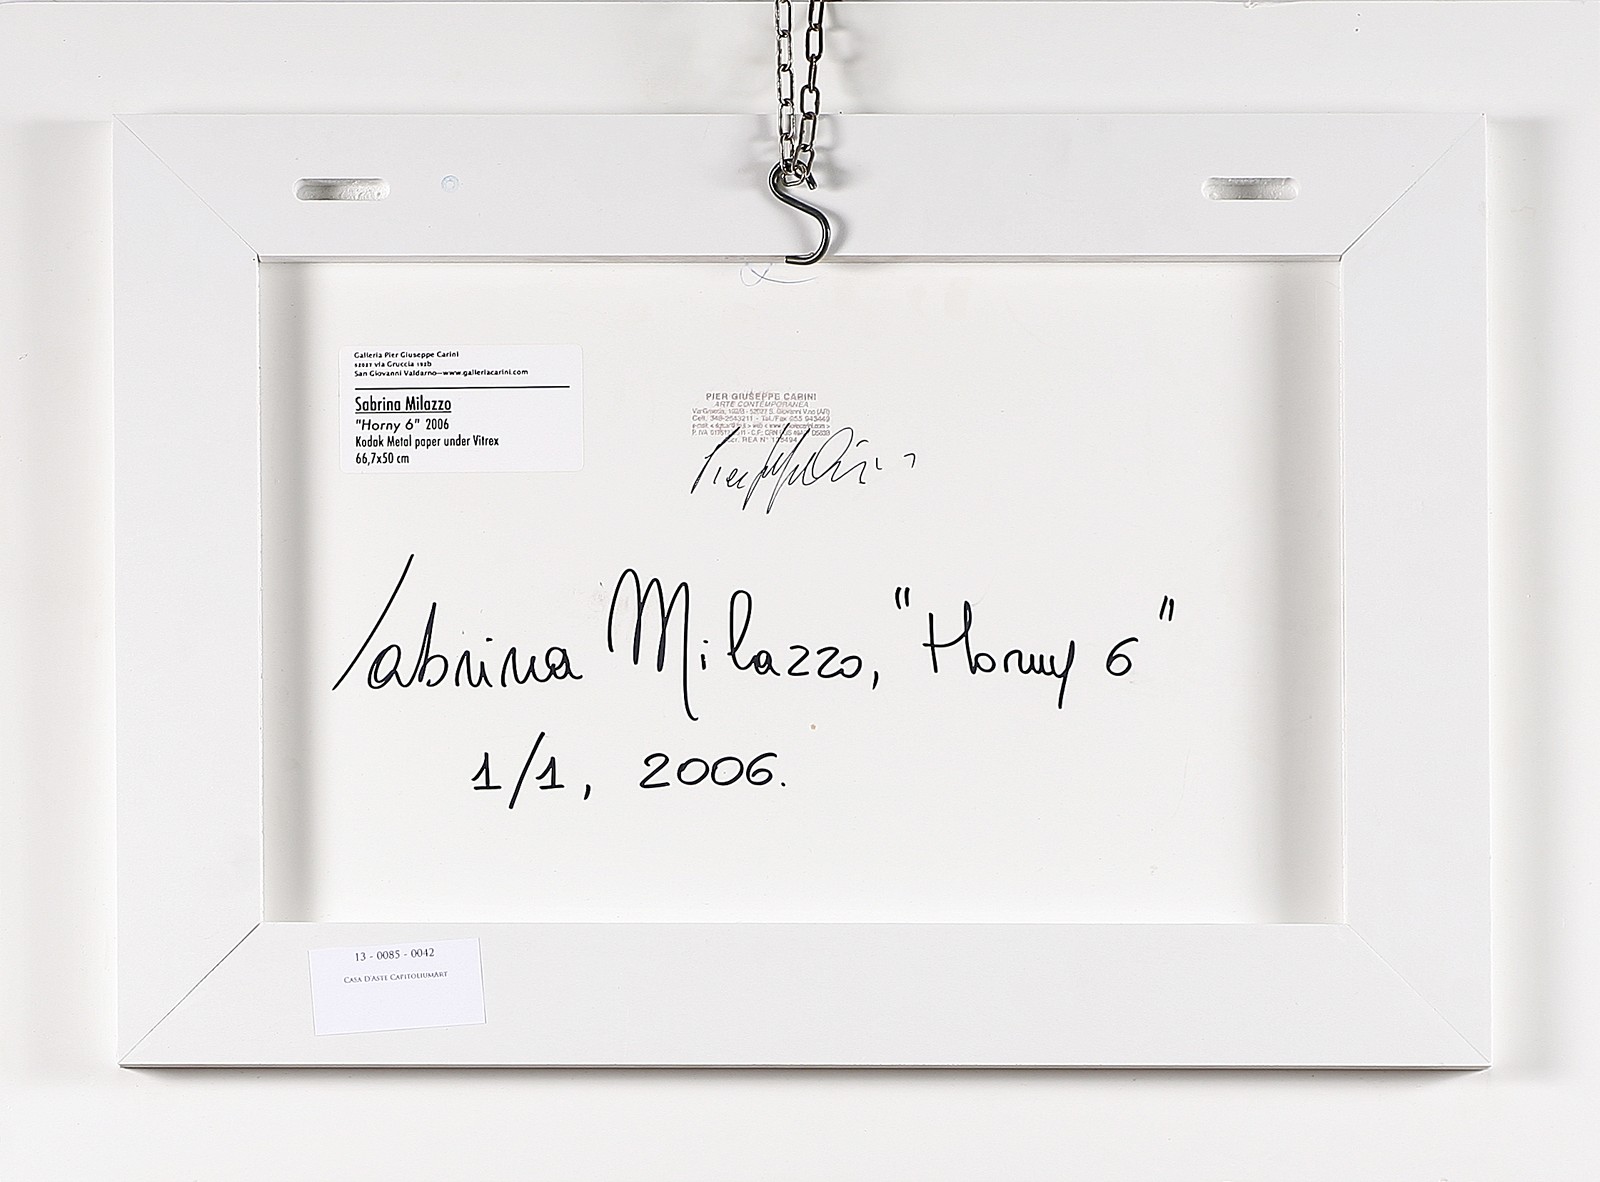 Galleria Pier Giuseppe Carini
52027 via Gruccia 192b
San Giovanni Valdarno—www.galleriacarini.com
Sabrina Milazzo
"Horny 6" 2006
Kodak Metal paper under Vitrex
66,7x50 cm
PIER GIUSEPPE CARINI
ARTE CONTEMPORANEA
Via Gruccia, - 52027 S. Giovanni V.no (AR)
Cell. - Tel./Fax 055 943449
P. IVA
REA N°
Sabrina Milazzo, "Horny 6"
1/1, 2006.
13 - 0085 - 0042
Casa D'Aste CapitoliumArt